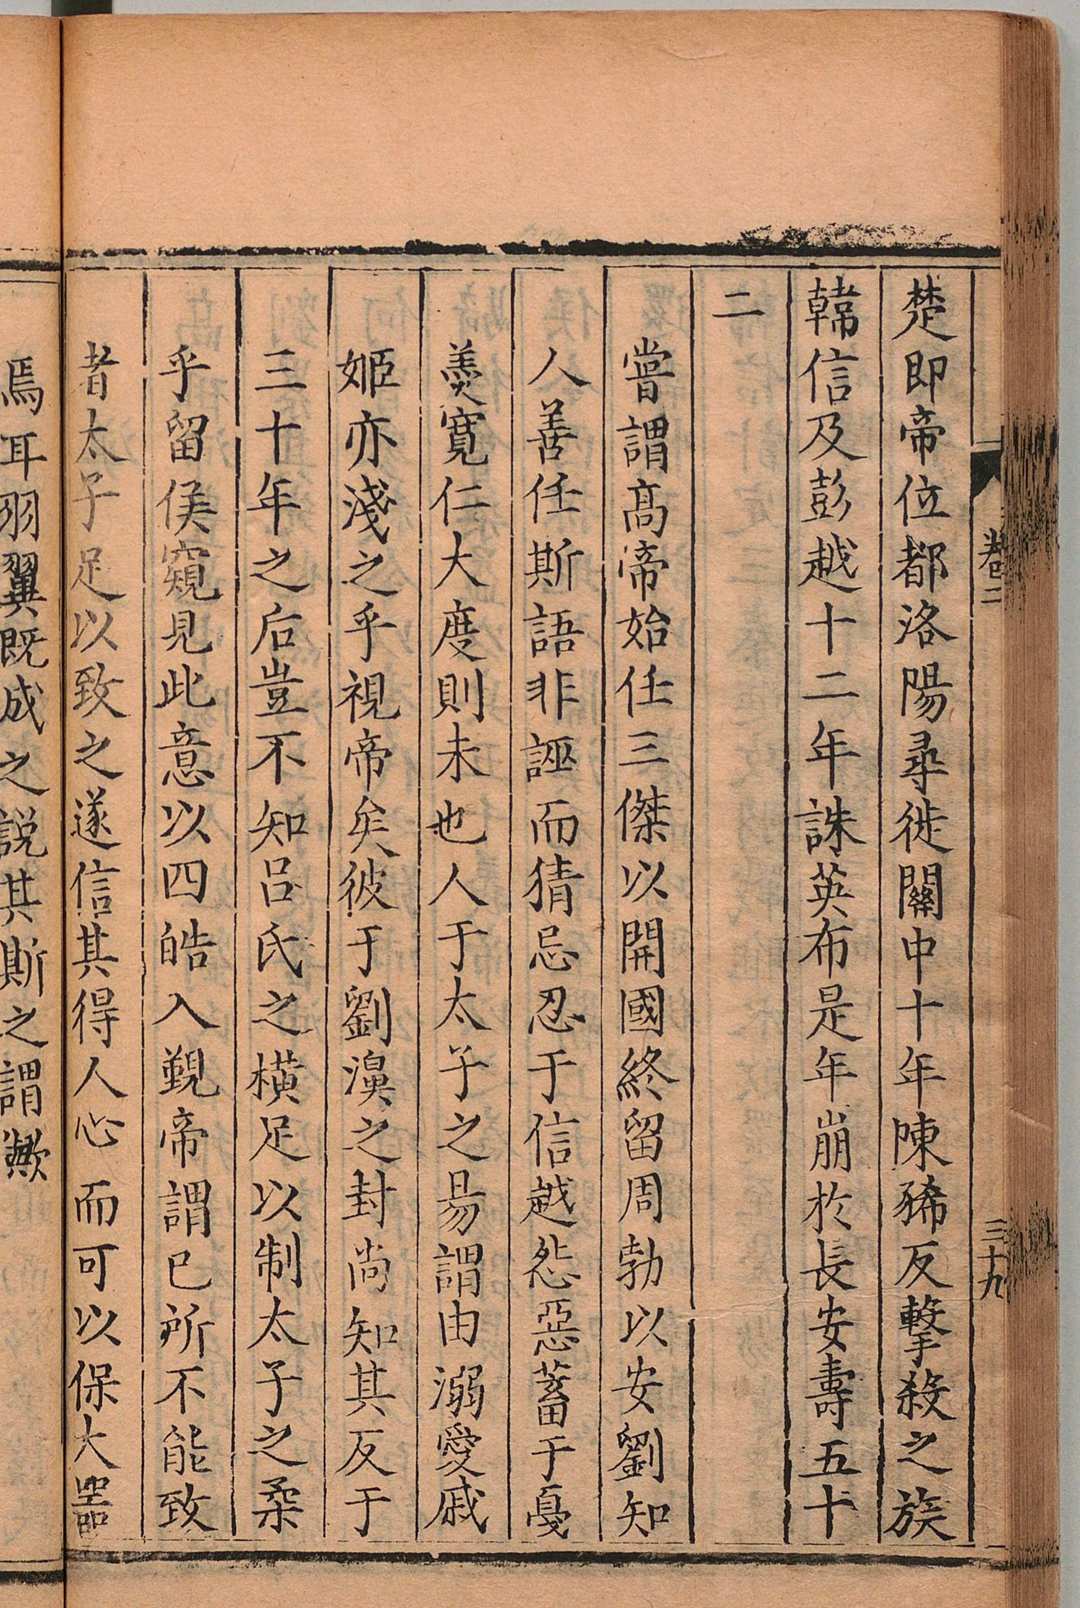 卷二
三十九
楚即帝位都洛陽尋徙關中十年陳豨反擊殺之族
韓信及彭越十二年誅英布是年崩於長安壽五十
二
嘗謂高帝始任三傑以開國終留周勃以安劉知
人善任斯語非誣而猜忌忍于信越怨惡蓄于戞
羹寬仁大度則未也人于太子之易謂由溺愛戚
姬亦淺之乎視帝矣彼于劉濞之封尚知其反于
三十年之后豈不知呂氏之橫足以制太子之柔
乎留侯窺見此意以四皓入覲帝謂已所不能致
者太子足以致之遂信其得人心而可以保大噐
焉耳羽翼既成之說其斯之謂歟